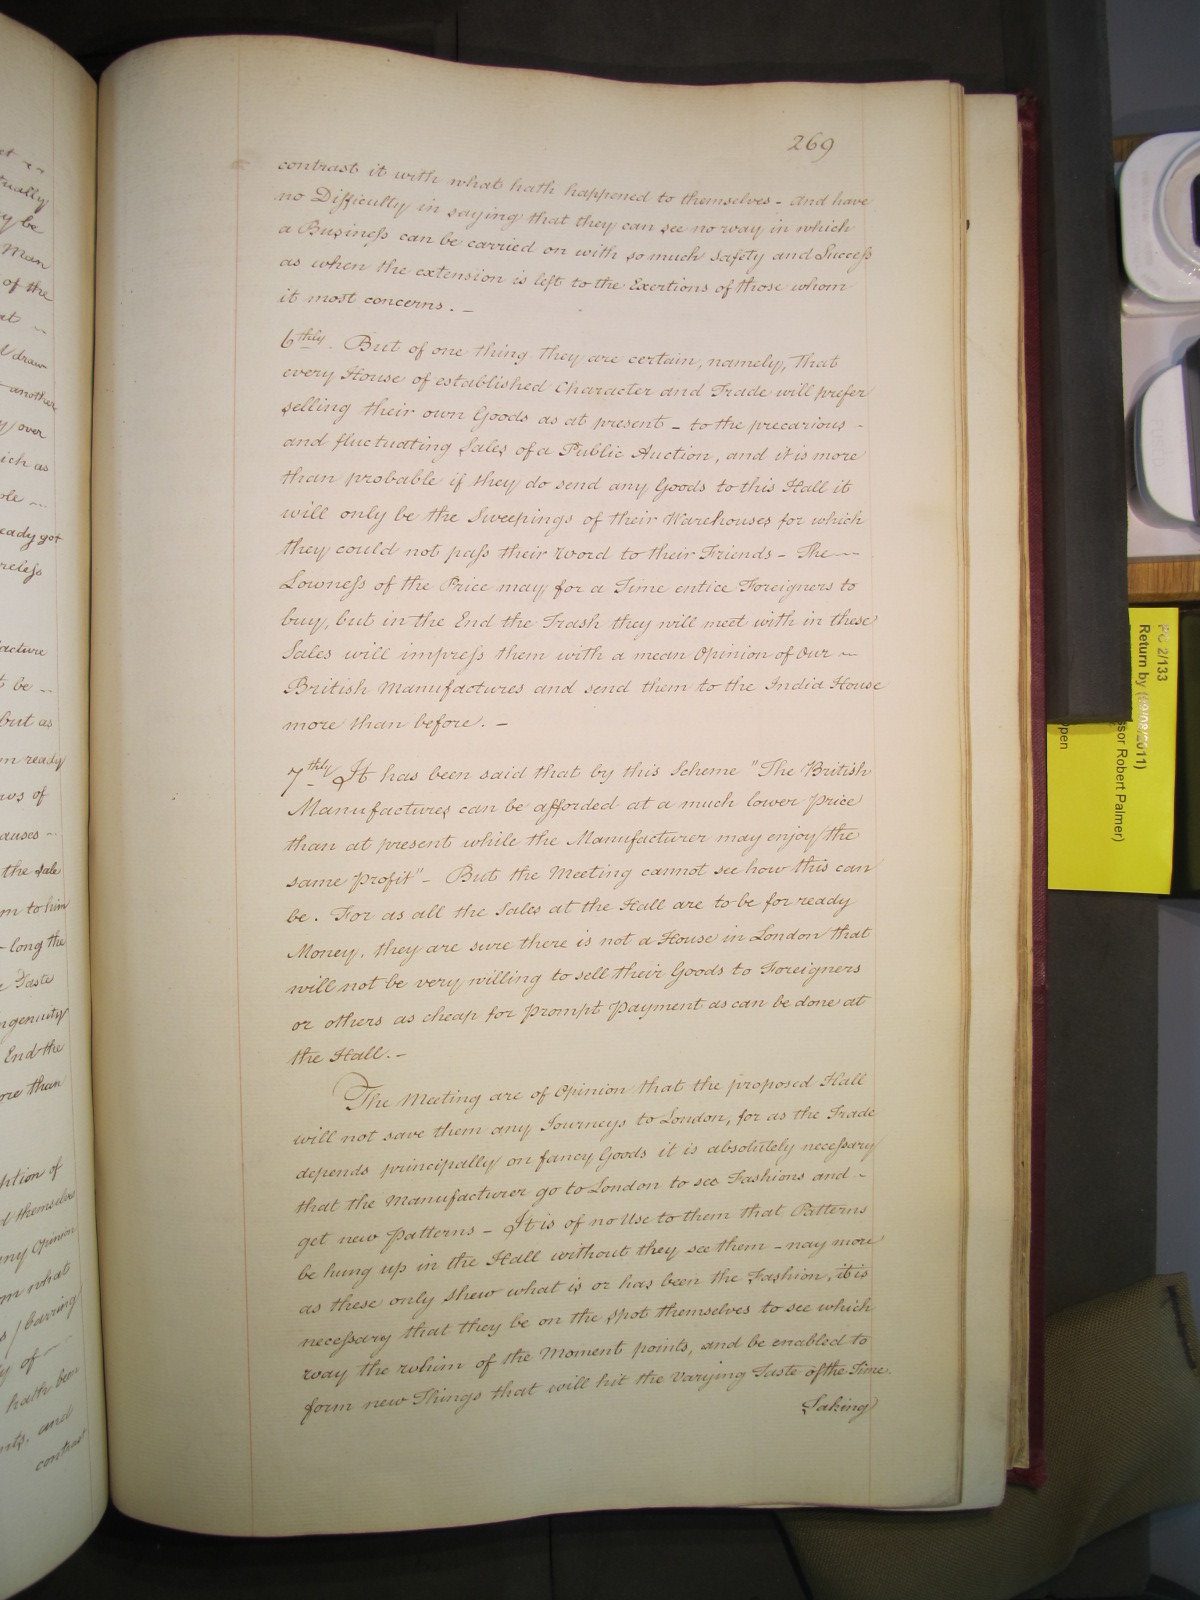 269
contrast it with what hath happened to themselves - And have
no Difficulty in saying that they can see no way in which
a Business can be carried on with so much Safety and Success
as when the extension is left to the Exertions of those whom
it most concerns. -
6thly. But of one thing they are certain, namely, That
every House of established Character and Trade will prefer
selling their own Goods as at present - to the precarious -
and fluctuating Sales of a Public Auction, and it is more
than probable if they do send any Goods to this Hall it
will only be the Sweepings of their Warehouses for which
they could not pass their Word to their Friends - The -
Lowness of the Price may for a Time entice Foreigners to
buy, but in the End the Trash they will meet with in these
Sales will impress them with a mean Opinion of Our -
British Manufactures and send them to the India House
more than before. -
7thly It has been said that by this Scheme "The British
Manufactures can be afforded at a much lower Price
than at present while the Manufacturer may enjoy the
same Profit" - But the Meeting cannot see how this can
be. For as all the Sales at the Hall are to be for ready
Money, they are sure there is not a House in London that
will not be very willing to sell their Goods to Foreigners
or others as cheap for Prompt Payment as can be done at
the Hall. -
The Meeting are of Opinion that the proposed Hall
will not save them any Journeys to London, for as the Trade
depends principally on fancy Goods it is absolutely necessary
that the Manufacturer go to London to see Fashions and -
get new Patterns - It is of no Use to them that Patterns
be hung up in the Hall without they see them - nay more
as these only shew what is or has been the Fashion, it is
necessary that they be on the Spot themselves to see which
way the whim of the Moment points, and be enabled to
form new Things that will hit the varying Taste of the Time.
Taking
tually
y be
Man
of the
draw
another
over
ich as
eady got
reless
acture
t be -
but as
m ready
ws of
auses -
the Sale
m to him
long the
Taste
ngenuity
End the
ore than
ption of
d themselves
any Opinion
om what
barring
y of -
hath been
nts, and
contrast
PC 2/133
Return by (09/08/2011)
sor Robert Palmer)
open